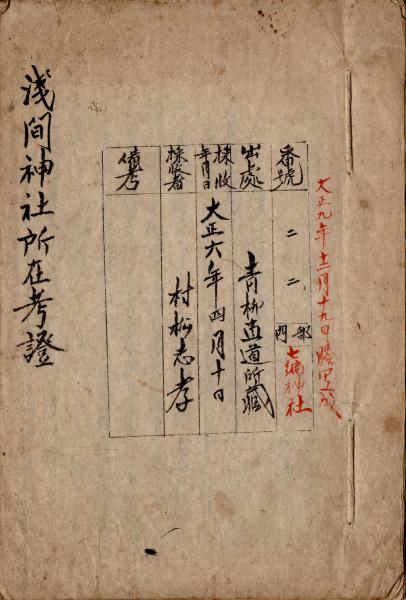 大正九年十二月十九日謄写成
番號 二二 部門 七編神社
出處 青柳直道所藏
採收年月日 大正六年四月十日
採收者 村松志孝
備考
淺間神社所在考證